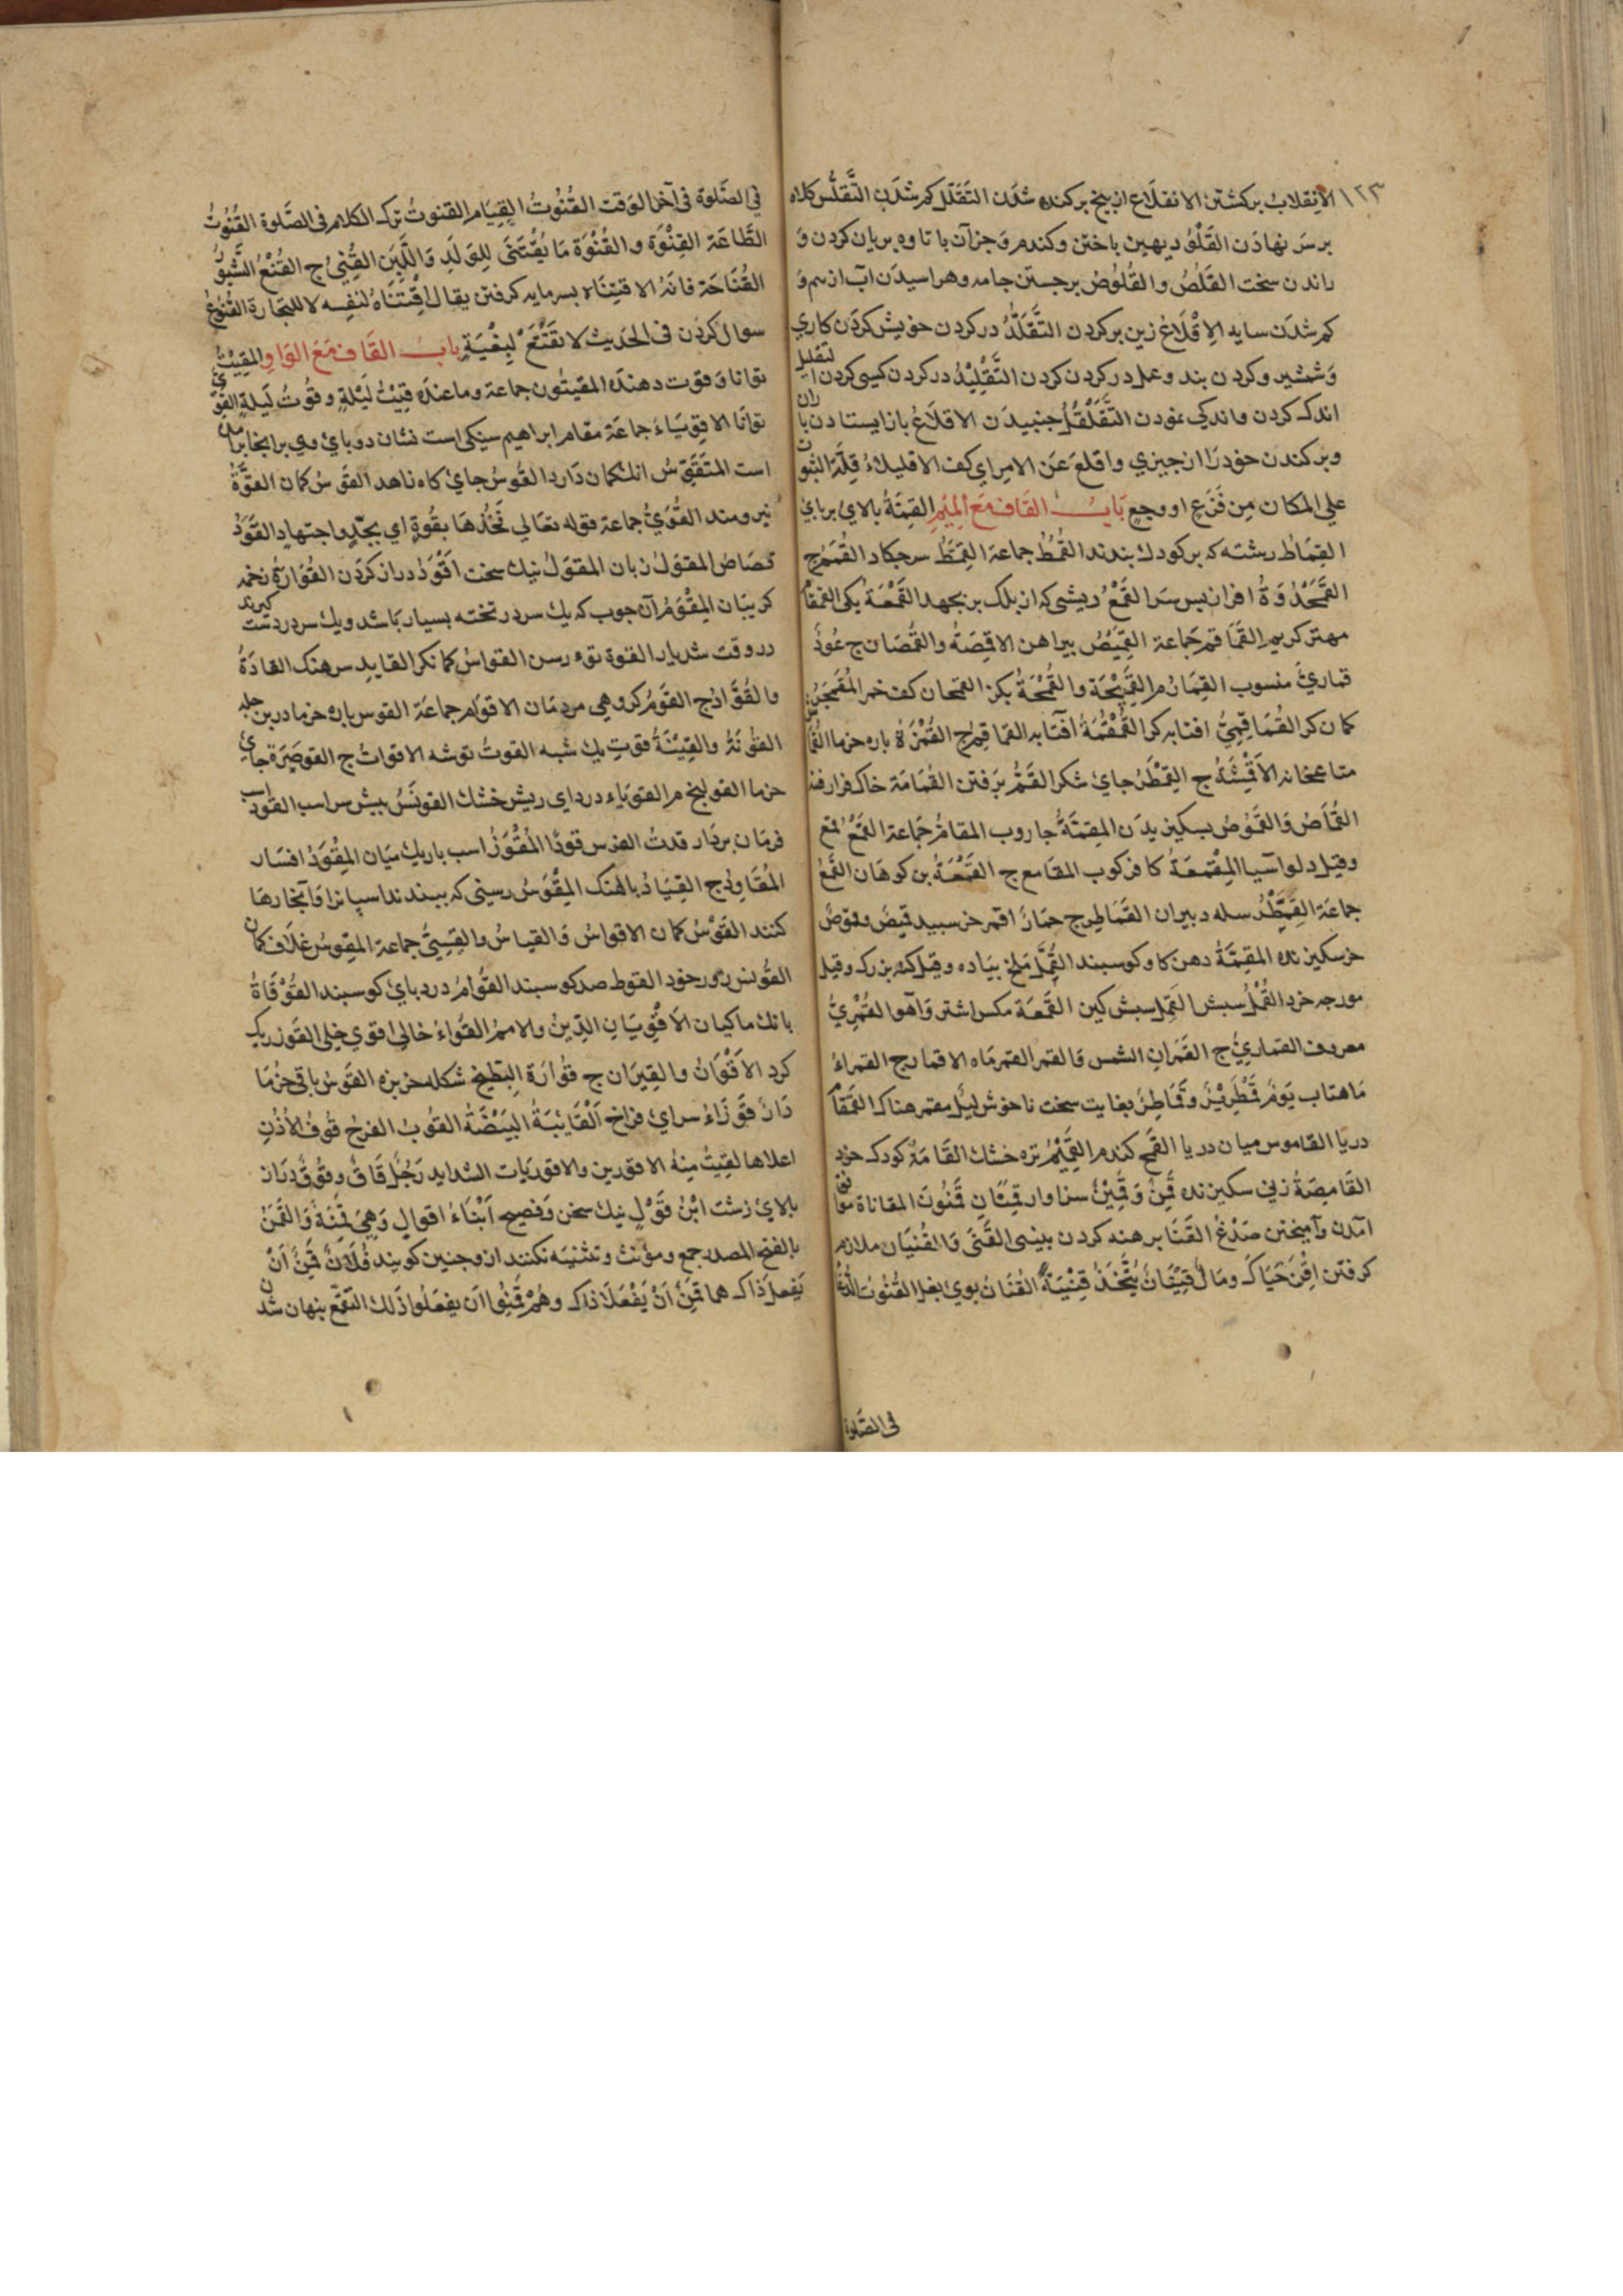 ١٢٣
الانقلاب برکشتن الانقلاع از بیخ برکنده شدن التقلل کم شدن التقلس کلاه
بر سر نهادن القلو دیهین باختن و کندم و جز آن با تاوه بریان کردن و
راندن سخت القلص والقلوص برجستن جامه وهراسیدن آب از سم و
کم شدن سایه الاقلاع زین بر کردن التقلد در کردن خویش کردن کاری
و شمشیر و کردن بند و عمل در کردن کردن التقلید در کردن کسی کردن التقلیل
اندک کردن و اندکی نمودن التقلقل جنبیدن الاقلاع باز ایستادن با ران
و بر کندن خود را از چیزی واقلع عن الامر ای کف الاقلیلا قلة الثبوت
علی المکان من فزع او وجع باب القاف مع المیم القمة بالای بربای
القماط رشته که بر کودک بندند القمط جماعة القمط سرجکاد القمح ج
القمحدوة افراز پس سر القمع ریشی که از پلک بر بجهد القمعة یکی القمقام
مهتر کریم القماقم جماعة القمیص پیراهن الاقمصة والقمصان ج عود
قماری منسوب القمار م القمیحة والقمحة بکنر القمحان کف خمر المقمجر
کمان کر القماقمی افتابه کر القمقمة آفتابه القماقم ج القمزة باره خرما القماش
متاع خانه الاقمشة ج القمطر جای شکر القم برفتن القمامة خاک فرا رفته
القماص والقموص بسکیزیدن المقمة جاروب المقام جماعة القمع قمع
وقیل دلو اسیا المقمعة کافر کوب المقامع ج القمعة بن کوهان القمع
جماعة القمطر سله دبیران القماطر ج حمار اقمر خر سبید قمیص وقموص
خر سکیزنده المقمة دهن کاو وکوسبند القمل ملخ پیاده وقیل کنه بزرک وقیل
مورچه خرد القمل سبش القمل سبش کین القمعة مکس اشتر و آهو القمری
معروف القماری ج القمران الشمس والقمر القمر ماه الاقمار ج القمراء
ماهتاب یوم قمطریر وقماطر بغایت سخت ناخوش لیل مقمر هناک القمقام
دریا القاموس میان دریا القمح کندم القمیم تره خشک القامة کودک خرد
القامصة زنی سکیزنده قمن وقمین سزاوار قمنان قمنون المقاناة موافق
آمدن وآمیختن صدغ القنا برهنه کردن بینی القنی والقنیان ملازم
کرفتن اقن حیاک ومال قنیان یتخذ قنیة القنان بوی بغل القنوت الدعا
فی الصلوة
فی الصلوة فی آخر الوقت القنوت القیام القنوت ترک الکلام فی الصلوة القنوت
الطاعة القنوة والقنوة ما یقتنی للولد واللبن القنی ج القنع الشبق
القناحة فانه الاقتناء بسرمایه کرفتن یقال اقتناه لنفسه لا للتجارة القنوع
سوال کردن فی الحدیث لا تقنع لبغیة باب القاف مع الواو المقیت
توانا و قوت دهنده المقیتون جماعة وما عنده قیت لیلة وقوت لیلة القوی
توانا الاقویاء جماعة مقام ابراهیم سنکی است نشان دو بای وی بر انجا
است المتقوس انک کمان دارد القوس جای کاه ناهد القوس کمان القوة
نیرومند القوی جماعة قوله تعالی فخذها بقوة ای بجد واجتهاد القود
قصاص المقول زبان المقول نیک سخت اقود دراز کردن القوارة نخمه
کریبان المقوم آن چوب که یک سر در تخته بسیار باشد و یک سر در دست کیرند
در وقت شدیار القوة توء رسن القواس کمانکر القاید سرهنک القادة
والقواد ج القوم کروهی مردمان الاقوام جماعة القوس باره خرما در بن جله
القونة والقیتة قوت یک شبه القوت توشه الاقوات ج القوصرة جای
خرما القولنج م القوباء درد ای ریش خشک القونس بیش سر اسب القود اسب
فرمان بردار قدت الفرس قودا المقور اسب باریک میان المقود افسار
المقاود ج القیاد بالهنک المقوس رسنی که ببندند اسپانرا و آنجا رها
کنند القوس کمان الاقواس والقیاس والقسی جماعة المقوس غلاف کمان
القونس زور خود القوط صد کوسبند القوام درد بای کوسبند القوقاة
بانک ماکیان الاقویان الدین والامر القواء خالی اقوی خلی القوز ریک
کرد الاقوان والقیزان ج قوارة البطیخ شکله خربزه القوس باقی خرما
دار قوزاء سرای فراخ القایبة البیضة القوب الفرخ قوف الاذن
اعلاها لقیت منه الاقورین والاقوریات الشداید رجل قاق وقوق دراز
بالای زشت ابن قول نیک سخن و فصیح ابناء اقوال وهی قمنة والقمن
بالفتح المصدر جمع ومؤنث و تثنیه نکنند ازو چنین کویند فلان قمن ان
یفعل ذاک هما قمن ان یفعلا ذاک وهم قمنوا ان یفعلوا ذلک التقمع بنهان شدن